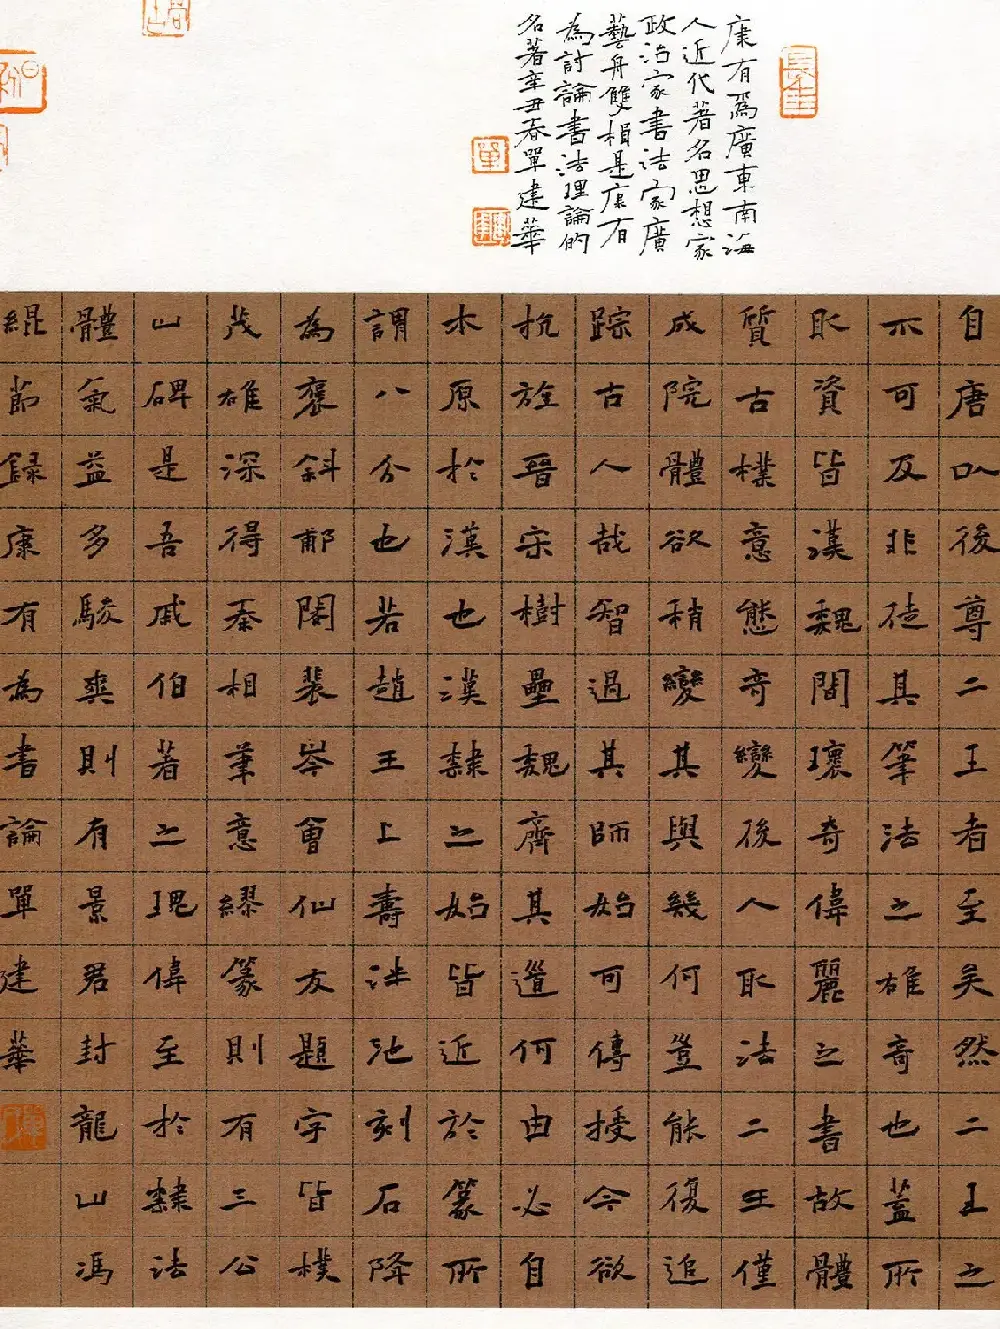 康有爲廣東南海
人近代著名思想家
政治家書法家廣
藝舟雙楫是康有
為討論書法理論的
名著辛丑春單建華
長生
單
自唐以後尊二王者至矣然二王之
不可及非徒其筆法之雄奇也蓋所
取資皆漢魏間瓌奇偉麗之書故體
質古樸意態奇變後人取法二王僅
成院體欲稍變其與幾何豈能復追
踪古人哉智過其師始可傳授今欲
抗旌晉宋樹壘魏齊其道何由必自
木原於漢也漢隸之始皆近於篆所
謂八分也若趙王上壽泮池刻石降
為褒斜郙閣裴岑會仙友題字皆樸
茂雄深得秦相筆意繆篆則有三公
山碑是吾戚伯著之瑰偉至於隸法
體氣益多駿爽則有景君封龍山馮
緄節錄康有為書論單建華